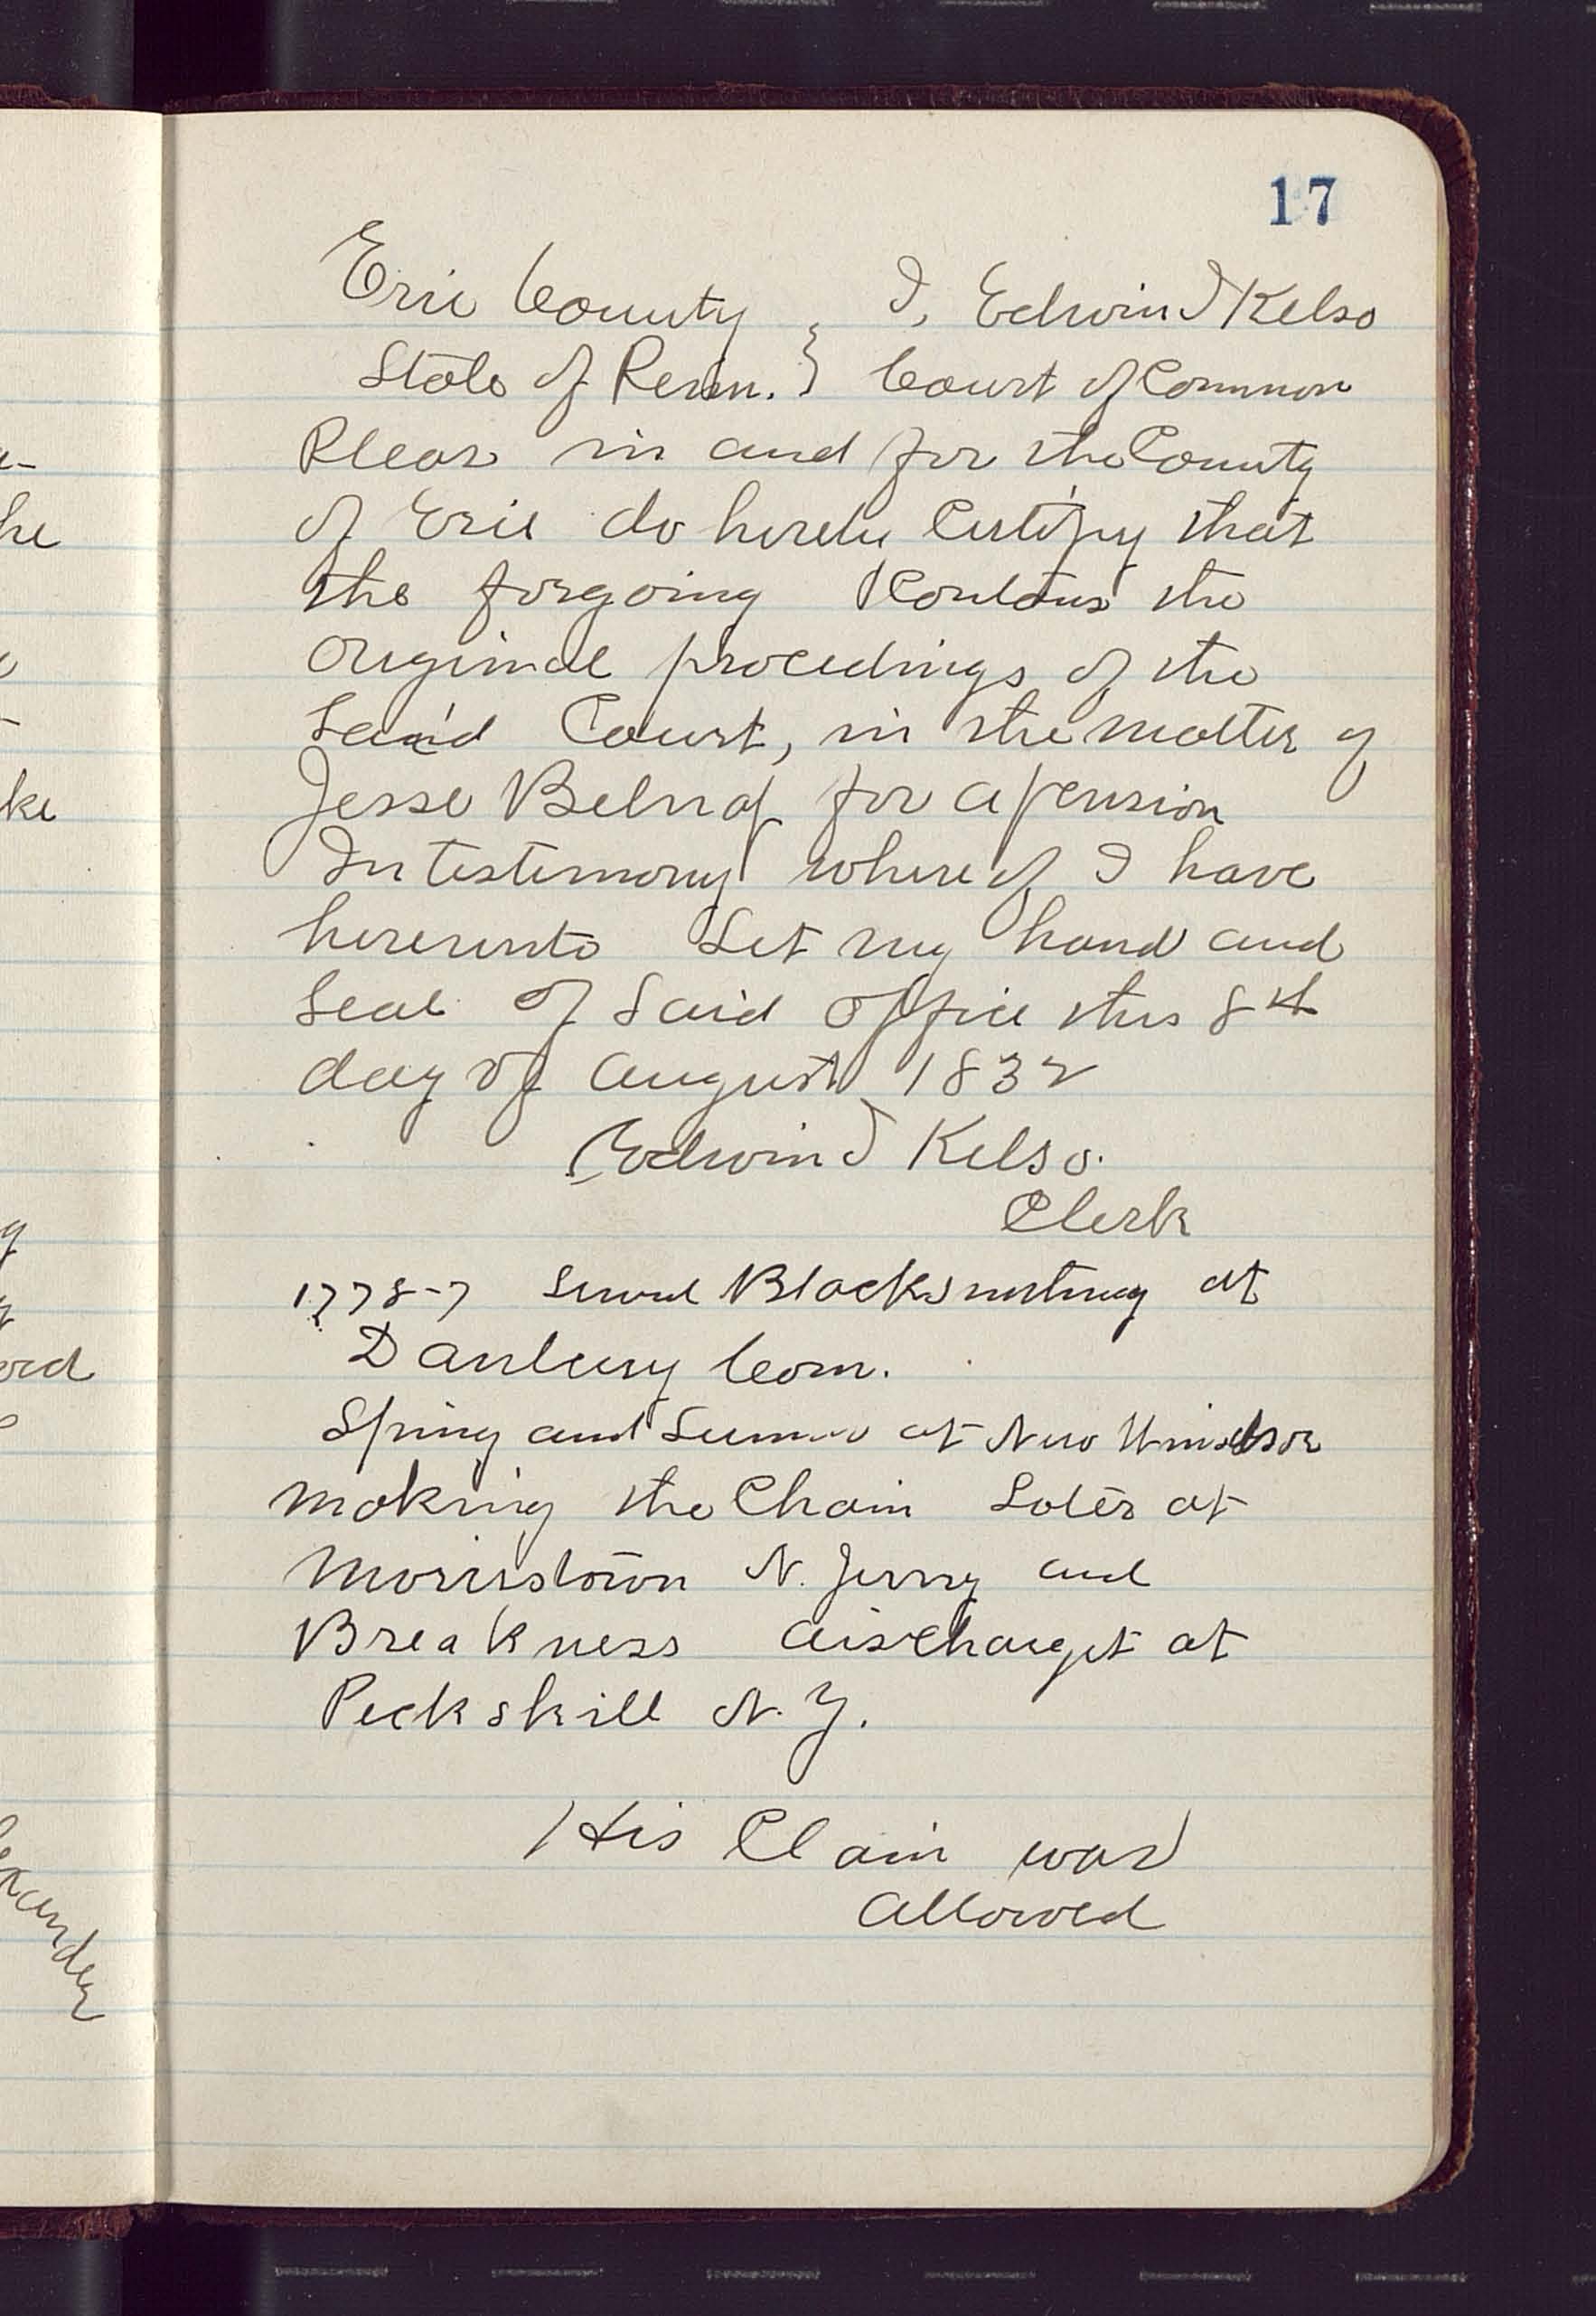 17
Erie County } I, Edwin J Kelso
State of Penn. } Court of Common
Pleas in and for the County
of Erie do hereby Certify that
the forgoing Contains the
original procedings of the
Said Court, in the matter of
Jesse Belnap for a pension
In testimony where of I have
hereunto Set my hand and
Seal of Said office this 8th
day of August 1832
Edwin J Kelso.
Clerk
1778-7 Served Blacksmithing at
Danbury Conn.
Spring and Summer at New Windsor
making the Chain Later at
Morristown N. Jersey and
Breakness dischargt at
Peckskill N.Y.
His Claim was
allowed
he
ke